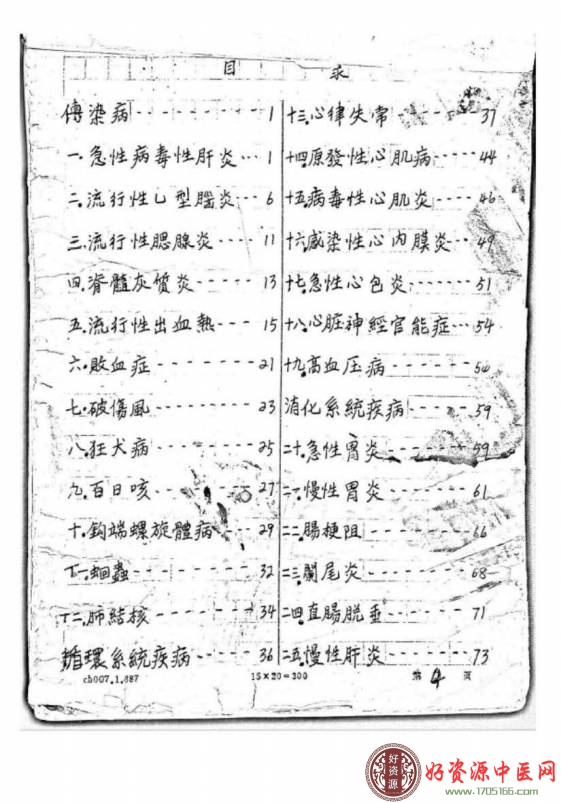 目 录
傳染病 1
一.急性病毒性肝炎 1
二.流行性乙型腦炎 6
三.流行性腮腺炎 11
四.脊髓灰质炎 13
五.流行性出血熱 15
六.敗血症 21
七.破傷風 23
八.狂犬病 25
九.百日咳 27
十.鈎端螺旋體病 29
十一.蛔蟲 32
十二.肺結核 34
循環系統疾病 36
十三.心律失常 37
十四.原發性心肌病 44
十五.病毒性心肌炎 46
十六.感染性心內膜炎 49
十七.急性心包炎 51
十八.心脏神經官能症 54
十九.高血压病
消化系統疾病 59
二十.急性胃炎 59
二一.慢性胃炎 61
二二.腸梗阻 66
二三.闌尾炎 68
二四.直腸脫垂 71
二五.慢性肝炎 73
ch007.1.887 15×20=300 第 4 页
好资源
好资源中医网
www.1705166.com